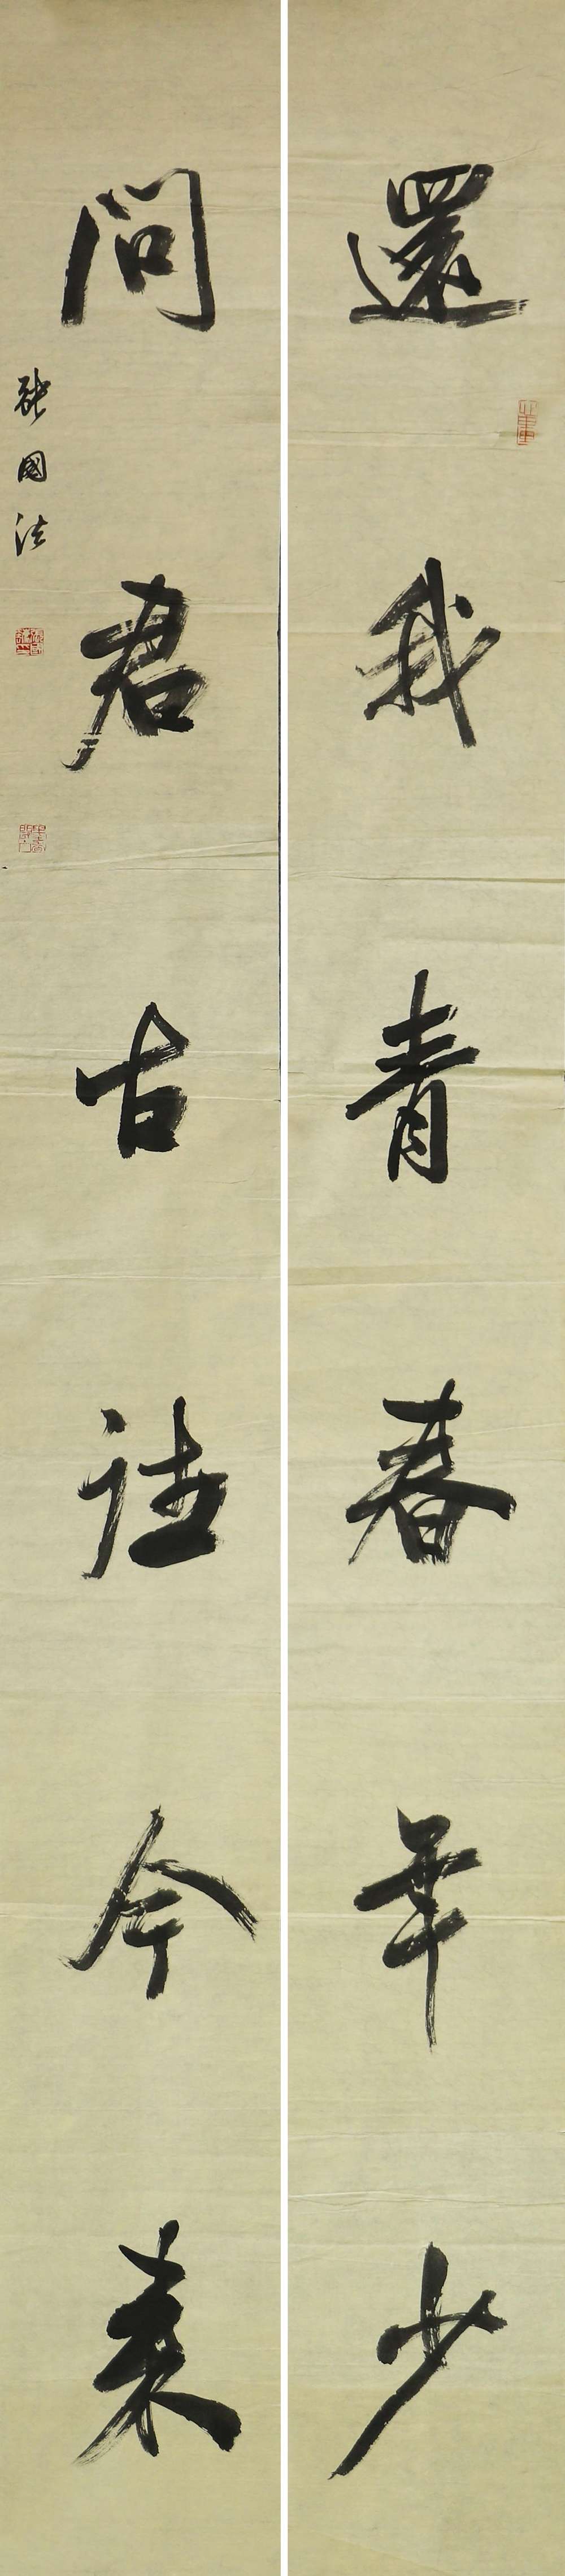 還我青春年少
問君古往今來
張國法